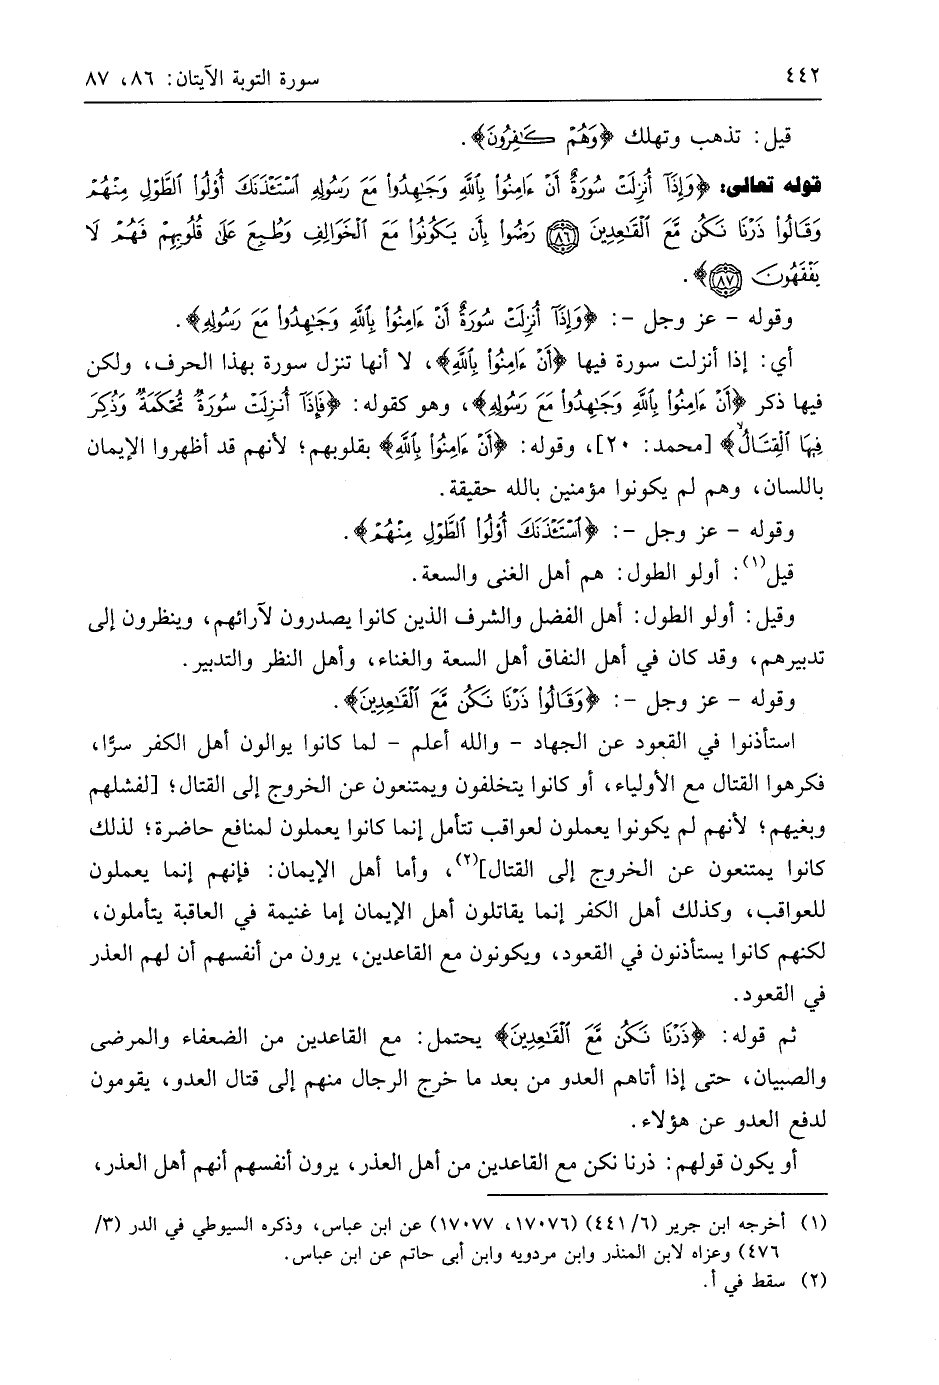 ٤٤٢ سورة التوبة الآيتان: ٨٦، ٨٧
قيل: تذهب وتهلك ﴿وَهُمْ كَٰفِرُونَ﴾.
قوله تعالى: ﴿وَإِذَآ أُنزِلَتْ سُورَةٌ أَنْ ءَامِنُوا۟ بِٱللَّهِ وَجَٰهِدُوا۟ مَعَ رَسُولِهِ ٱسْتَـْٔذَنَكَ أُو۟لُوا۟ ٱلطَّوْلِ مِنْهُمْ
وَقَالُوا۟ ذَرْنَا نَكُن مَّعَ ٱلْقَٰعِدِينَ ﴿٨٦﴾ رَضُوا۟ بِأَن يَكُونُوا۟ مَعَ ٱلْخَوَالِفِ وَطُبِعَ عَلَىٰ قُلُوبِهِمْ فَهُمْ لَا
يَفْقَهُونَ ﴿٨٧﴾﴾.
وقوله - عز وجل -: ﴿وَإِذَآ أُنزِلَتْ سُورَةٌ أَنْ ءَامِنُوا۟ بِٱللَّهِ وَجَٰهِدُوا۟ مَعَ رَسُولِهِ﴾.
أي: إذا أنزلت سورة فيها ﴿أَنْ ءَامِنُوا۟ بِٱللَّهِ﴾، لا أنها تنزل سورة بهذا الحرف، ولكن
فيها ذكر ﴿أَنْ ءَامِنُوا۟ بِٱللَّهِ وَجَٰهِدُوا۟ مَعَ رَسُولِهِ﴾، وهو كقوله: ﴿فَإِذَآ أُنزِلَتْ سُورَةٌ مُّحْكَمَةٌ وَذُكِرَ
فِيهَا ٱلْقِتَالُ﴾ [محمد: ٢٠]، وقوله: ﴿أَنْ ءَامِنُوا۟ بِٱللَّهِ﴾ بقلوبهم؛ لأنهم قد أظهروا الإيمان
باللسان، وهم لم يكونوا مؤمنين بالله حقيقة.
وقوله - عز وجل -: ﴿ٱسْتَـْٔذَنَكَ أُو۟لُوا۟ ٱلطَّوْلِ مِنْهُمْ﴾.
قيل(١): أولو الطول: هم أهل الغنى والسعة.
وقيل: أولو الطول: أهل الفضل والشرف الذين كانوا يصدرون لآرائهم، وينظرون إلى
تدبيرهم، وقد كان في أهل النفاق أهل السعة والغناء، وأهل النظر والتدبير.
وقوله - عز وجل -: ﴿وَقَالُوا۟ ذَرْنَا نَكُن مَّعَ ٱلْقَٰعِدِينَ﴾.
استأذنوا في القعود عن الجهاد - والله أعلم - لما كانوا يوالون أهل الكفر سرًّا،
فكرهوا القتال مع الأولياء، أو كانوا يتخلفون ويمتنعون عن الخروج إلى القتال؛ [لفشلهم
وبغيهم؛ لأنهم لم يكونوا يعملون لعواقب تتأمل إنما كانوا يعملون لمنافع حاضرة؛ لذلك
كانوا يمتنعون عن الخروج إلى القتال](٢)، وأما أهل الإيمان: فإنهم إنما يعملون
للعواقب، وكذلك أهل الكفر إنما يقاتلون أهل الإيمان إما غنيمة في العاقبة يتأملون،
لكنهم كانوا يستأذنون في القعود، ويكونون مع القاعدين، يرون من أنفسهم أن لهم العذر
في القعود.
ثم قوله: ﴿ذَرْنَا نَكُن مَّعَ ٱلْقَٰعِدِينَ﴾ يحتمل: مع القاعدين من الضعفاء والمرضى
والصبيان، حتى إذا أتاهم العدو من بعد ما خرج الرجال منهم إلى قتال العدو، يقومون
لدفع العدو عن هؤلاء.
أو يكون قولهم: ذرنا نكن مع القاعدين من أهل العذر، يرون أنفسهم أنهم أهل العذر،
(١) أخرجه ابن جرير (٦/ ٤٤١) (١٧٠٧٦، ١٧٠٧٧) عن ابن عباس، وذكره السيوطي في الدر (٣/
٤٧٦) وعزاه لابن المنذر وابن مردويه وابن أبى حاتم عن ابن عباس.
(٢) سقط في أ.